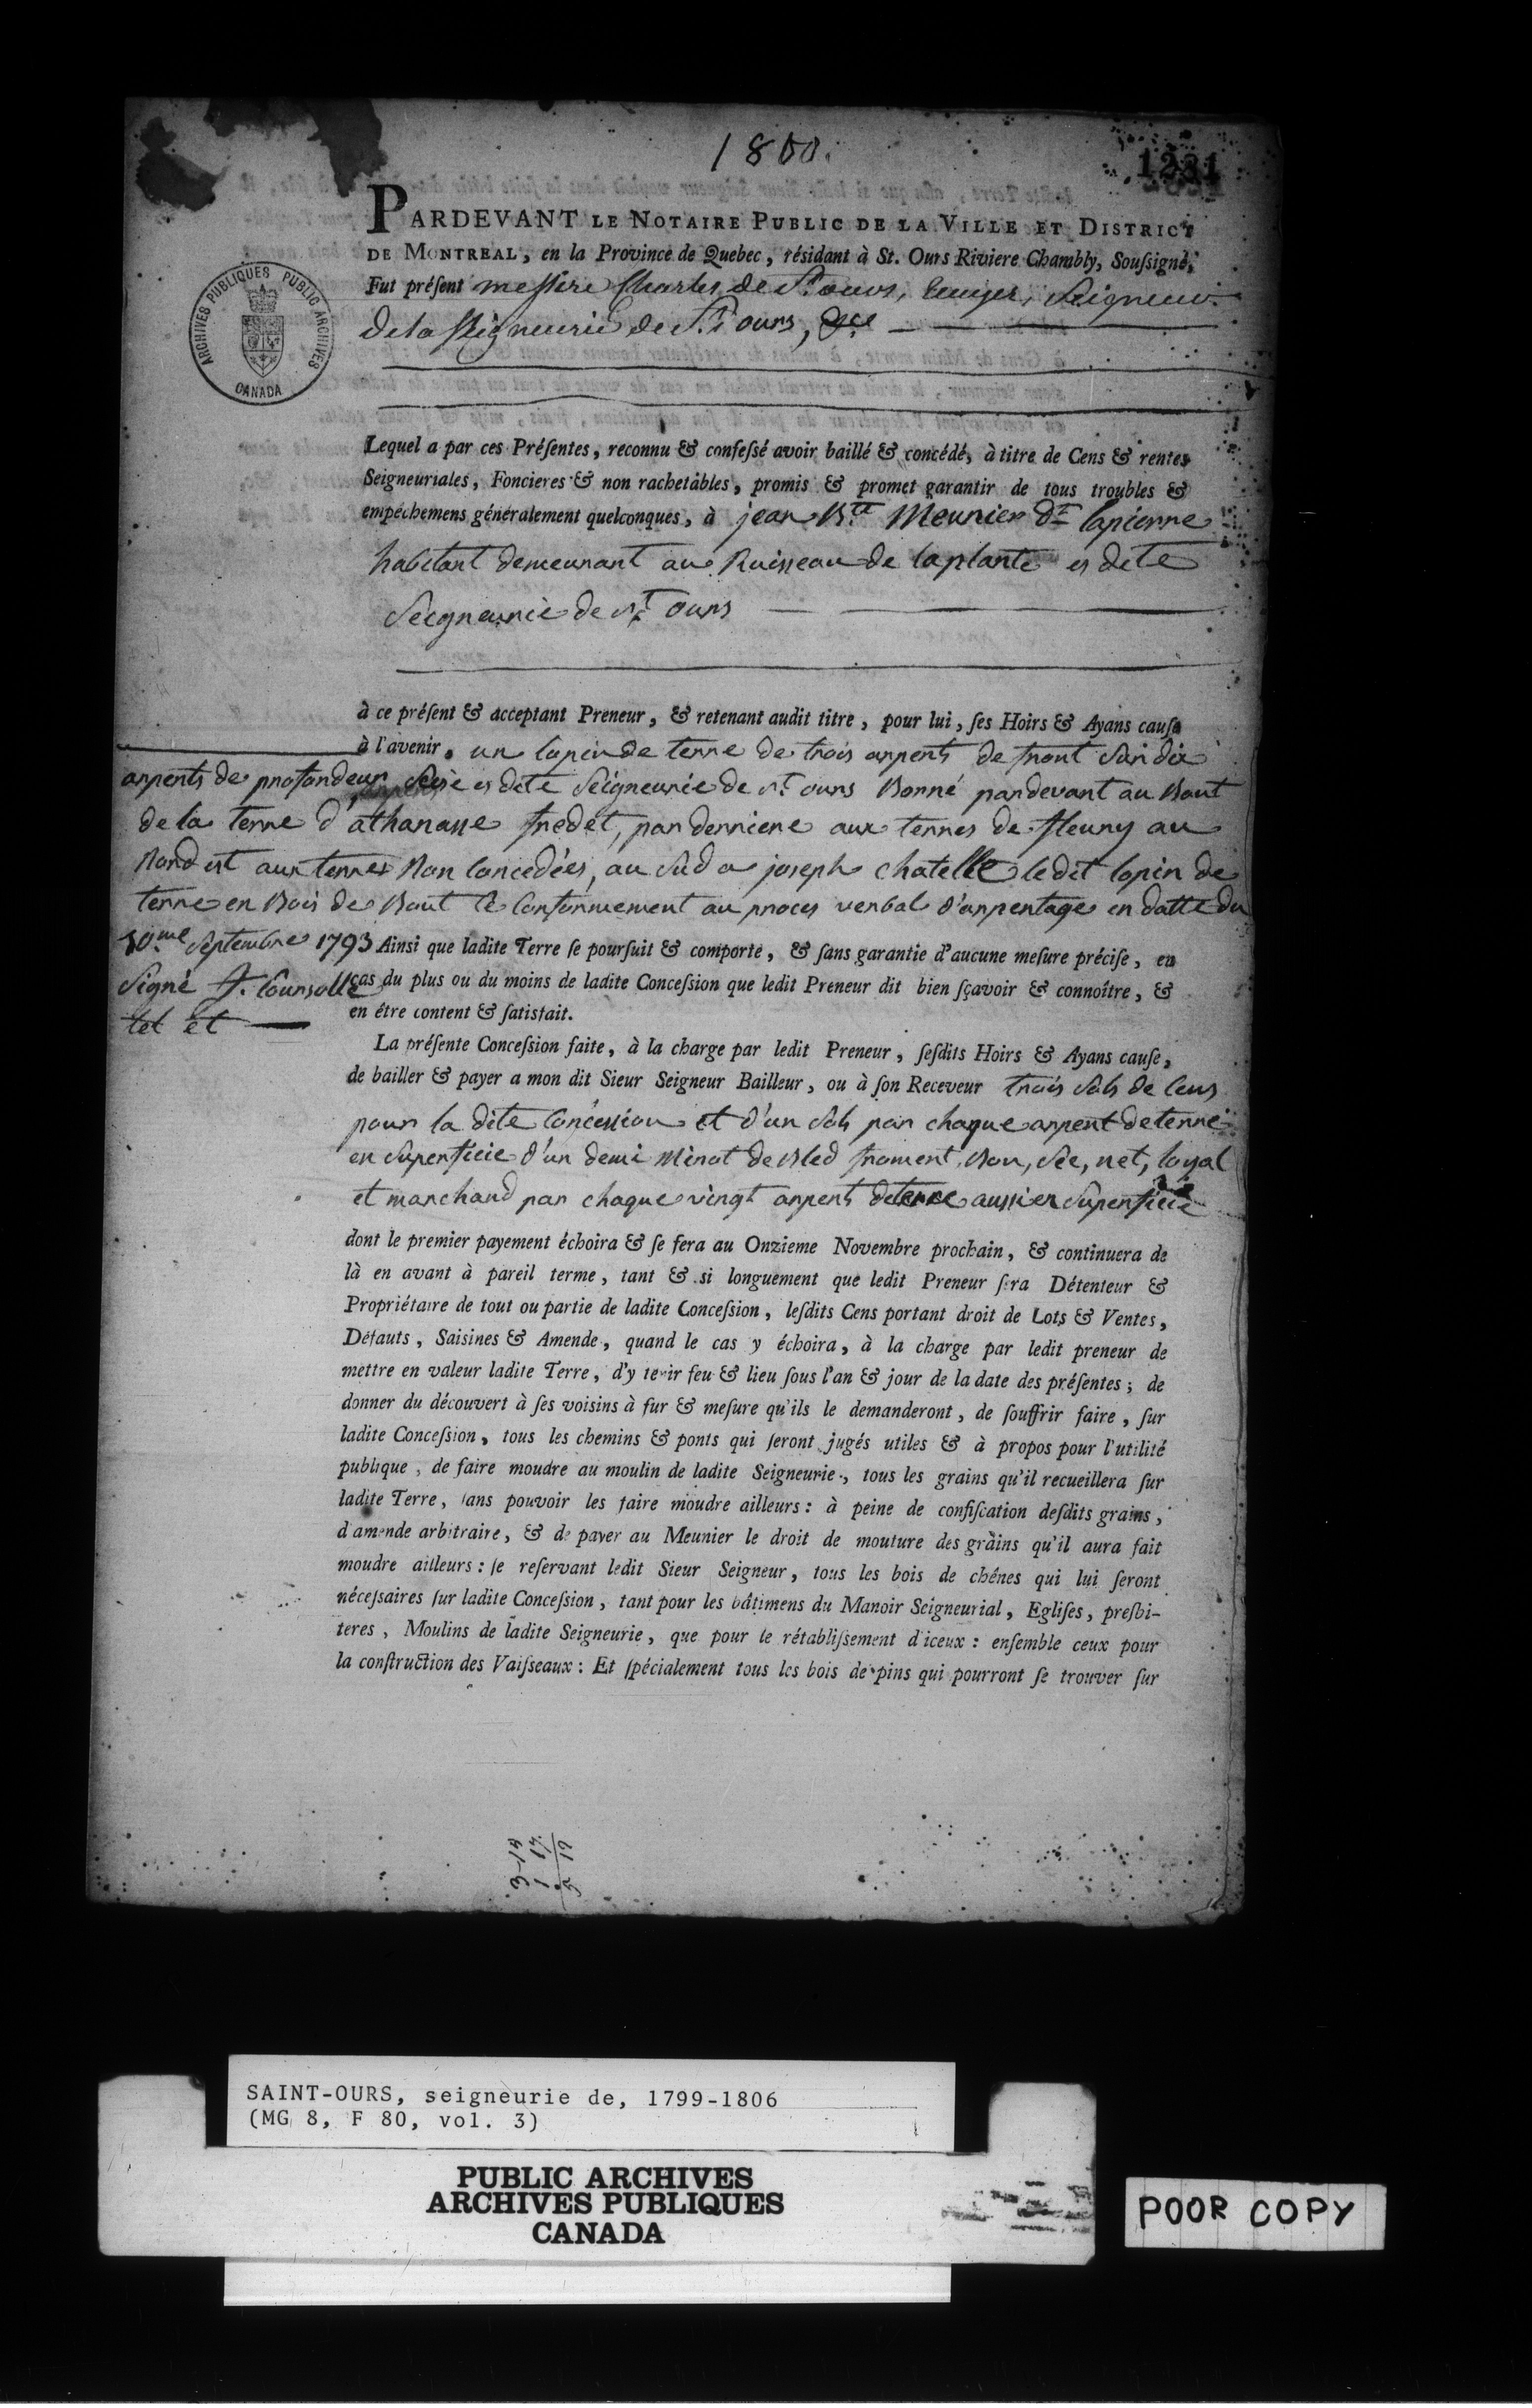 1800.
1231
PARDEVANT LE NOTAIRE PUBLIC DE LA VILLE ET DISTRICT
DE MONTREAL, en la Province de Quebec, résidant à St. Ours Riviere Chambly, Souſsigné,
Fut préſent messire Charles de St. ours, Ecuyer, Seigneur
de la Seigneurie de St. ours, &ce
ARCHIVES PUBLIQUES PUBLIC ARCHIVES
CANADA
Lequel a par ces Préſentes, reconnu & confeſsé avoir baillé & concédé, à titre de Cens & rentes
Seigneuriales, Foncieres & non rachetables, promis & promet garantir de tous troubles &
empéchemens généralement quelconques, à jean Bte Meunier dt lapierre
habitant demeurant au Ruisseau de laplante es dete
Seigneurie de St ours
à ce préſent & acceptant Preneur, & retenant audit titre, pour lui, ſes Hoirs & Ayans cauſe
à l'avenir. un lapin de terre de trois arpents de front sur dix
arpents de profondeur es dete Seigneurie de st. ours Borné pardevant au Bout
de la terre d'athanasse fredet, par derriere aux terres de fleury au
Nord est aux terres Non Concedées, au sud a joseph chatelle le dit lopin de
terre en Bois de Bout le Conformement au proces verbal d'arpentage en datte du
10me Septembre 1793 Ainsi que ladite Terre ſe pourſuit & comporte, & ſans garantie d'aucune meſure préciſe, en
Signé cas du plus ou du moins de ladite Conceſsion que ledit Preneur dit bien ſçavoir & connoître, &
tel et en être content & ſatisfait.
La préſente Conceſsion faite, à la charge par ledit Preneur, ſeſdits Hoirs & Ayans cauſe,
de bailler & payer a mon dit Sieur Seigneur Bailleur, ou à ſon Receveur trois sols de Cens
pour la dite Concession et d'un sols par chaque arpent de terre
en superficie d'un demi Minot de Bled froment, Bon, sec, net, loyal
et marchand par chaque vingt arpents de terre aussi en superficie
dont le premier payement échoira & ſe fera au Onzieme Novembre prochain, & continuera de
là en avant à pareil terme, tant & si longuement que ledit Preneur ſera Détenteur &
Propriétaire de tout ou partie de ladite Conceſsion, leſdits Cens portant droit de Lots & Ventes,
Défauts, Saisines & Amende, quand le cas y échoira, à la charge par ledit preneur de
mettre en valeur ladite Terre, d'y tenir feu & lieu ſous l'an & jour de la date des préſentes; de
donner du découvert à ſes voisins à fur & meſure qu'ils le demanderont, de ſouffrir faire, ſur
ladite Conceſsion, tous les chemins & ponts qui ſeront jugés utiles & à propos pour l'utilité
publique, de faire moudre au moulin de ladite Seigneurie, tous les grains qu'il recueillera ſur
ladite Terre, ſans pouvoir les faire moudre ailleurs: à peine de confiſcation deſdits grains,
d'amende arbitraire, & de payer au Meunier le droit de mouture des grains qu'il aura fait
moudre ailleurs: ſe reſervant ledit Sieur Seigneur, tous les bois de chénes qui lui ſeront
néceſsaires ſur ladite Conceſsion, tant pour les bâtimens du Manoir Seigneurial, Egliſes, preſbi-
teres, Moulins de ladite Seigneurie, que pour le rétabliſsement d'iceux: enſemble ceux pour
la conſtruction des Vaiſseaux: Et ſpécialement tous les bois de pins qui pourront ſe trouver ſur
SAINT-OURS, seigneurie de, 1799-1806
(MG 8, F 80, vol. 3)
PUBLIC ARCHIVES
ARCHIVES PUBLIQUES
CANADA
POOR COPY